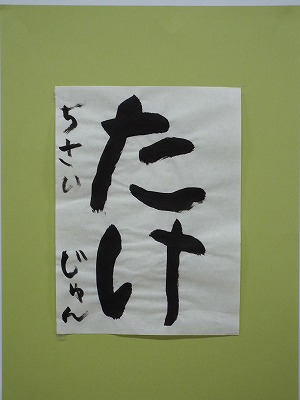 たけ
ちさい じゅん